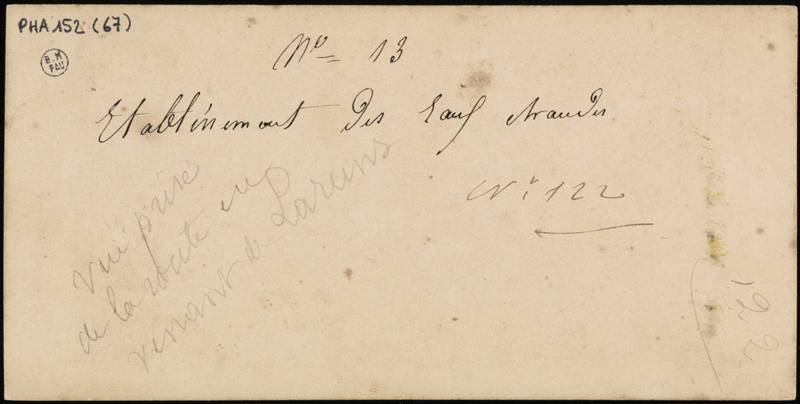 PHA 152 (67)
B.M
PAU
No 13
Etablissement des Eaux chaudes
No 122
Vue prise
de la route en
venant de Laruns
122